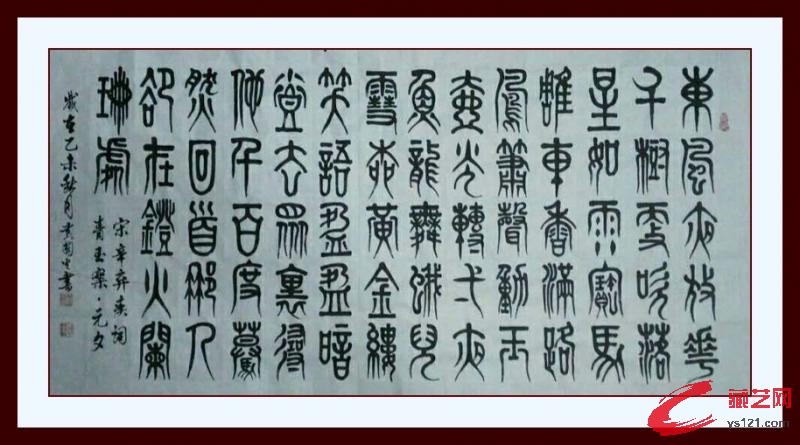 東風夜放花
千樹更吹落
星如雨寶馬
雕車香滿路
鳳簫聲動玉
壺光轉弌夜
魚龍舞蛾兒
雪柳黃金縷
笑語盈盈暗
香去眾裏尋
他千百度驀
然回首那人
卻在鐙火闌
珊處
宋辛弃疾词
青玉案·元夕
歲在乙未秋月
藏艺网
ys121.com